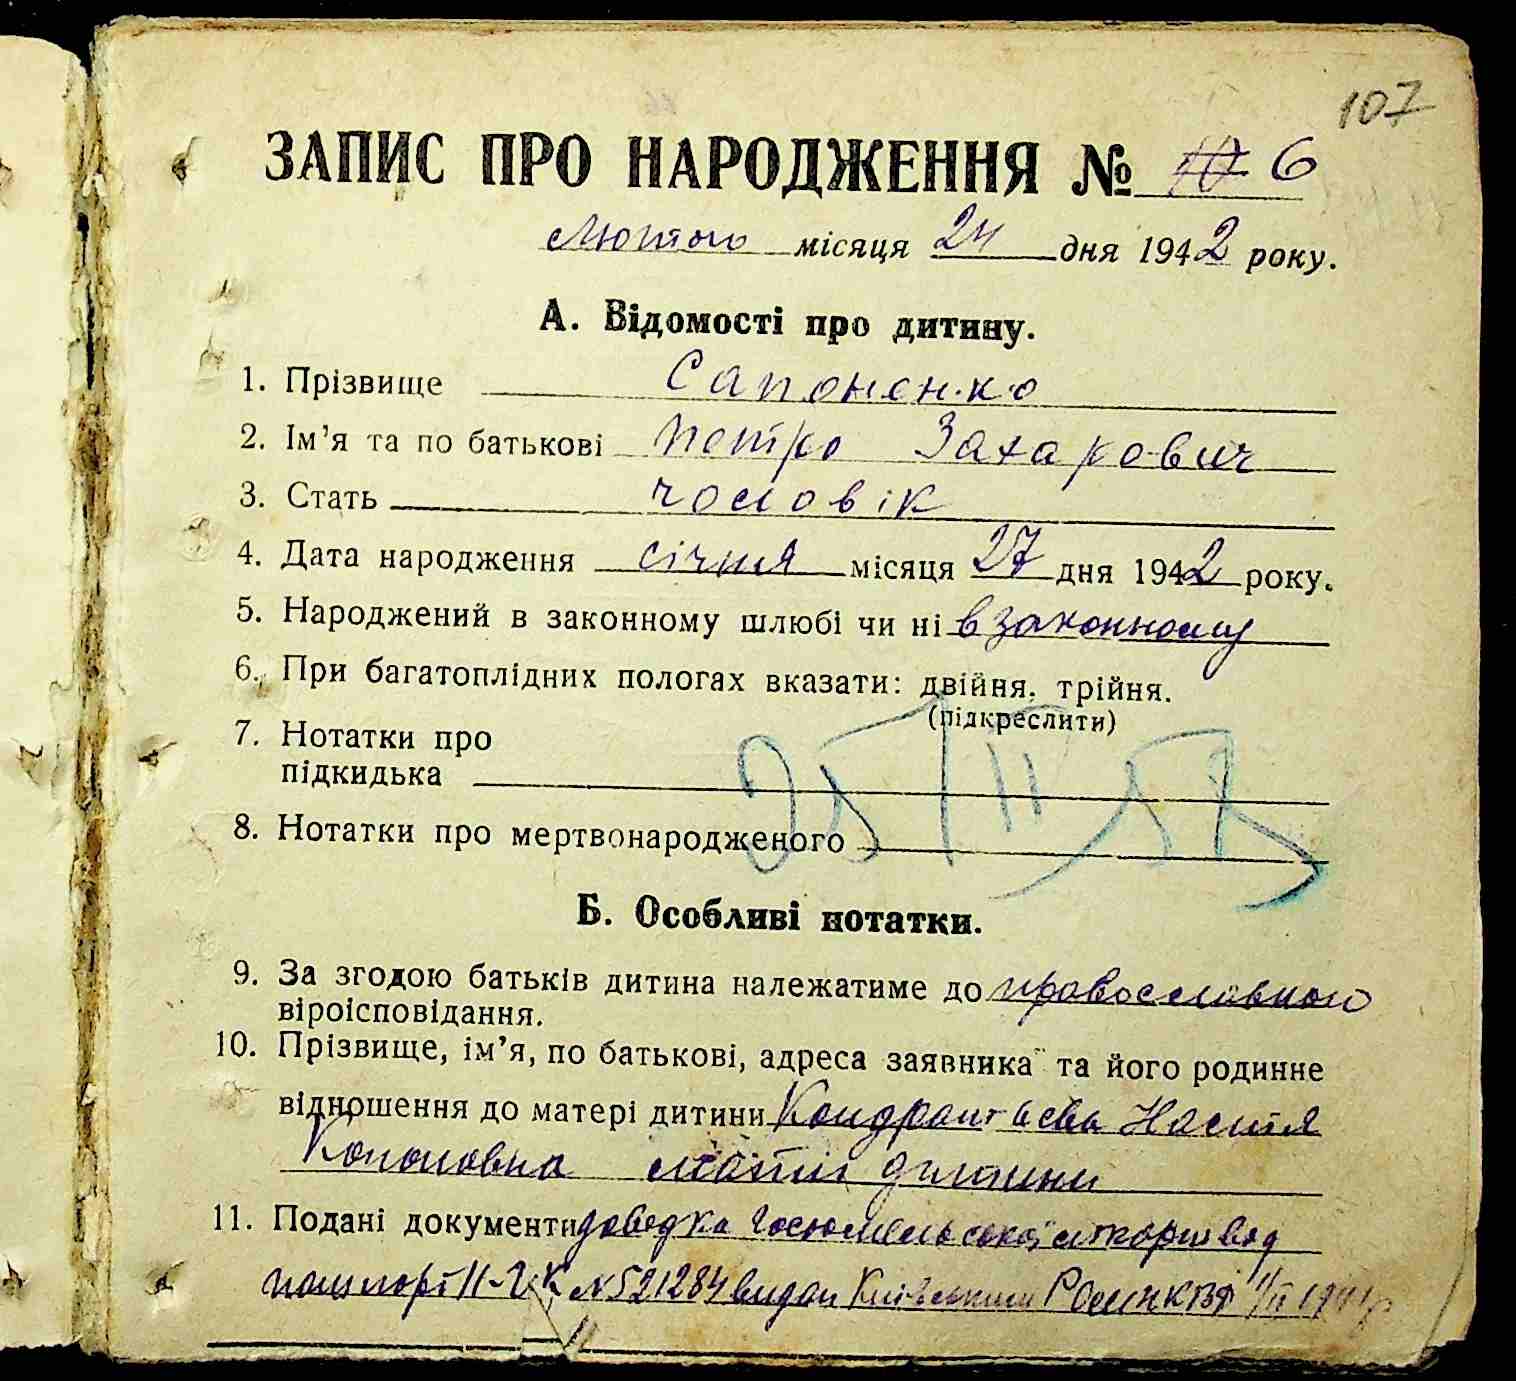 107
ЗАПИС ПРО НАРОДЖЕННЯ № 10 6
лютого місяця 24 дня 1942 року.
А. Відомості про дитину.
1. Прізвище Сапоненко
2. Ім’я та по батькові Петро Захарович
3. Стать чоловік
4. Дата народження січня місяця 27 дня 1942 року.
5. Народжений в законному шлюбі чи ні в законному
6. При багатоплідних пологах вказати: двійня, трійня.
(підкреслити)
7. Нотатки про
підкидька
8. Нотатки про мертвонародженого
Б. Особливі нотатки.
9. За згодою батьків дитина належатиме до православного
віроісповідання.
10. Прізвище, ім’я, по батькові, адреса заявника та його родинне
відношення до матері дитини Кондратєва Настя
Кононовна мати дитини
11. Подані документи довідка Гостомельської
пашпорт № 521284 видан Київським